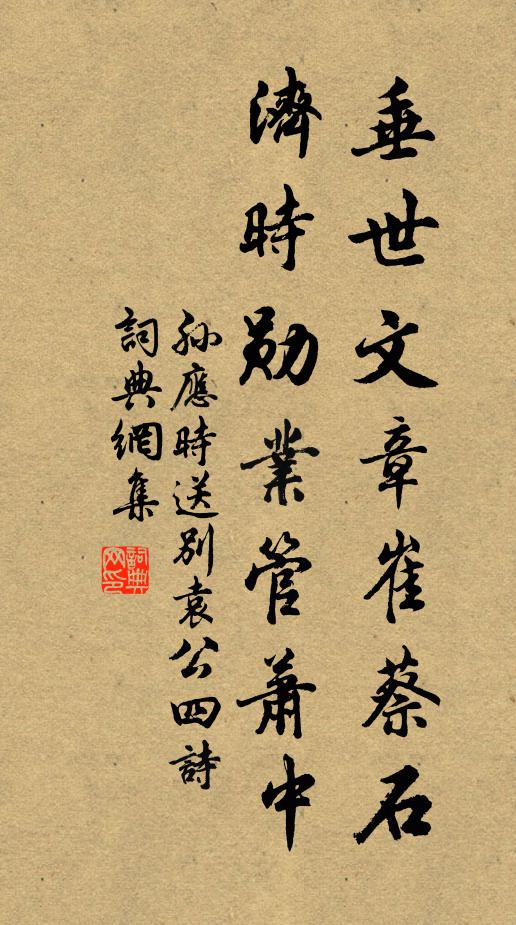 垂世文章崔蔡石
濟時勛業管蕭中
孫應時送別袁公四詩
詞典網集
詞典
网印